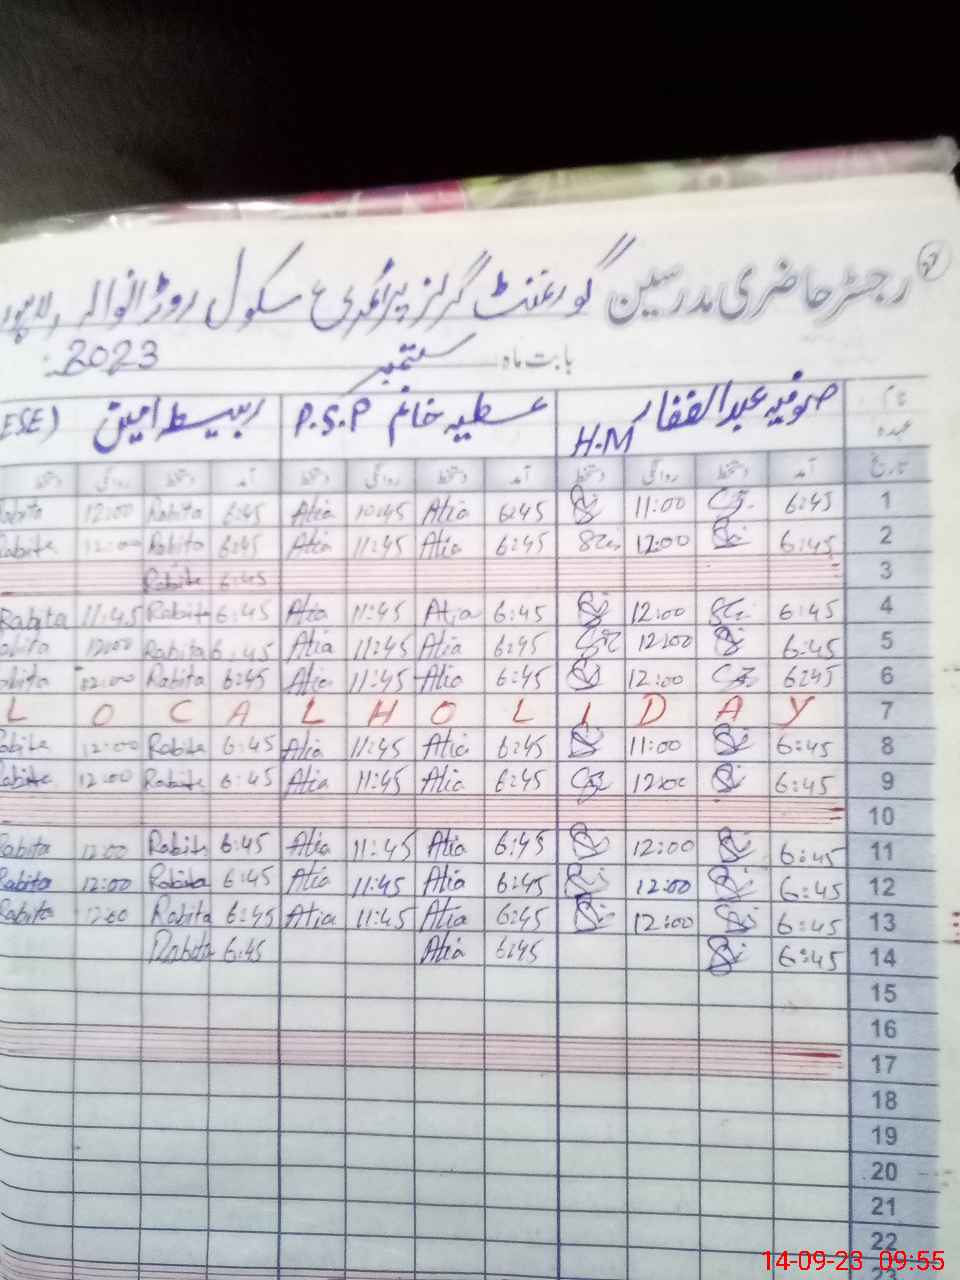 رجسٹر حاضری مدرسین گورنمنٹ گرلز پرائمری سکول روڑانوالہ لاہور
بابت ماہ ستمبر 2023
نام عہدہ صوفیہ عبدالغفار H.M عطیہ خانم P.S.P امین ESE)
تاریخ آمد دستخط روانگی دستخط آمد دستخط روانگی دستخط آمد دستخط روانگی دستخط
1 6:45 11:00 6:45 Atia 10:45 Atia 6:45 Rabita 12:00
2 6:45 12:00 6:45 Atia 11:45 Atia 6:45 Rabita 12:00
3 6:45 Rabita
4 6:45 12:00 6:45 Atia 11:45 Atia 6:45 Rabita 11:45 Rabita
5 6:45 12:00 6:45 Atia 11:45 Atia 6:45 Rabita 12:00
6 6:45 12:00 6:45 Atia 11:45 Atia 6:45 Rabita 12:00
7 LOCAL HOLIDAY
8 6:45 11:00 6:45 Atia 11:45 Atia 6:45 Rabita 12:00
9 6:45 12:00 6:45 Atia 11:45 Atia 6:45 Rabita 12:00
10
11 6:45 12:00 6:45 Atia 11:45 Atia 6:45 Rabita 12:00 Rabita
12 6:45 12:00 6:45 Atia 11:45 Atia 6:45 Rabita 12:00 Rabita
13 6:45 12:00 6:45 Atia 11:45 Atia 6:45 Rabita 12:00 Rabita
14 6:45 6:45 Atia 6:45 Rabita
15
16
17
18
19
20
21
22
14-09-23 09:55